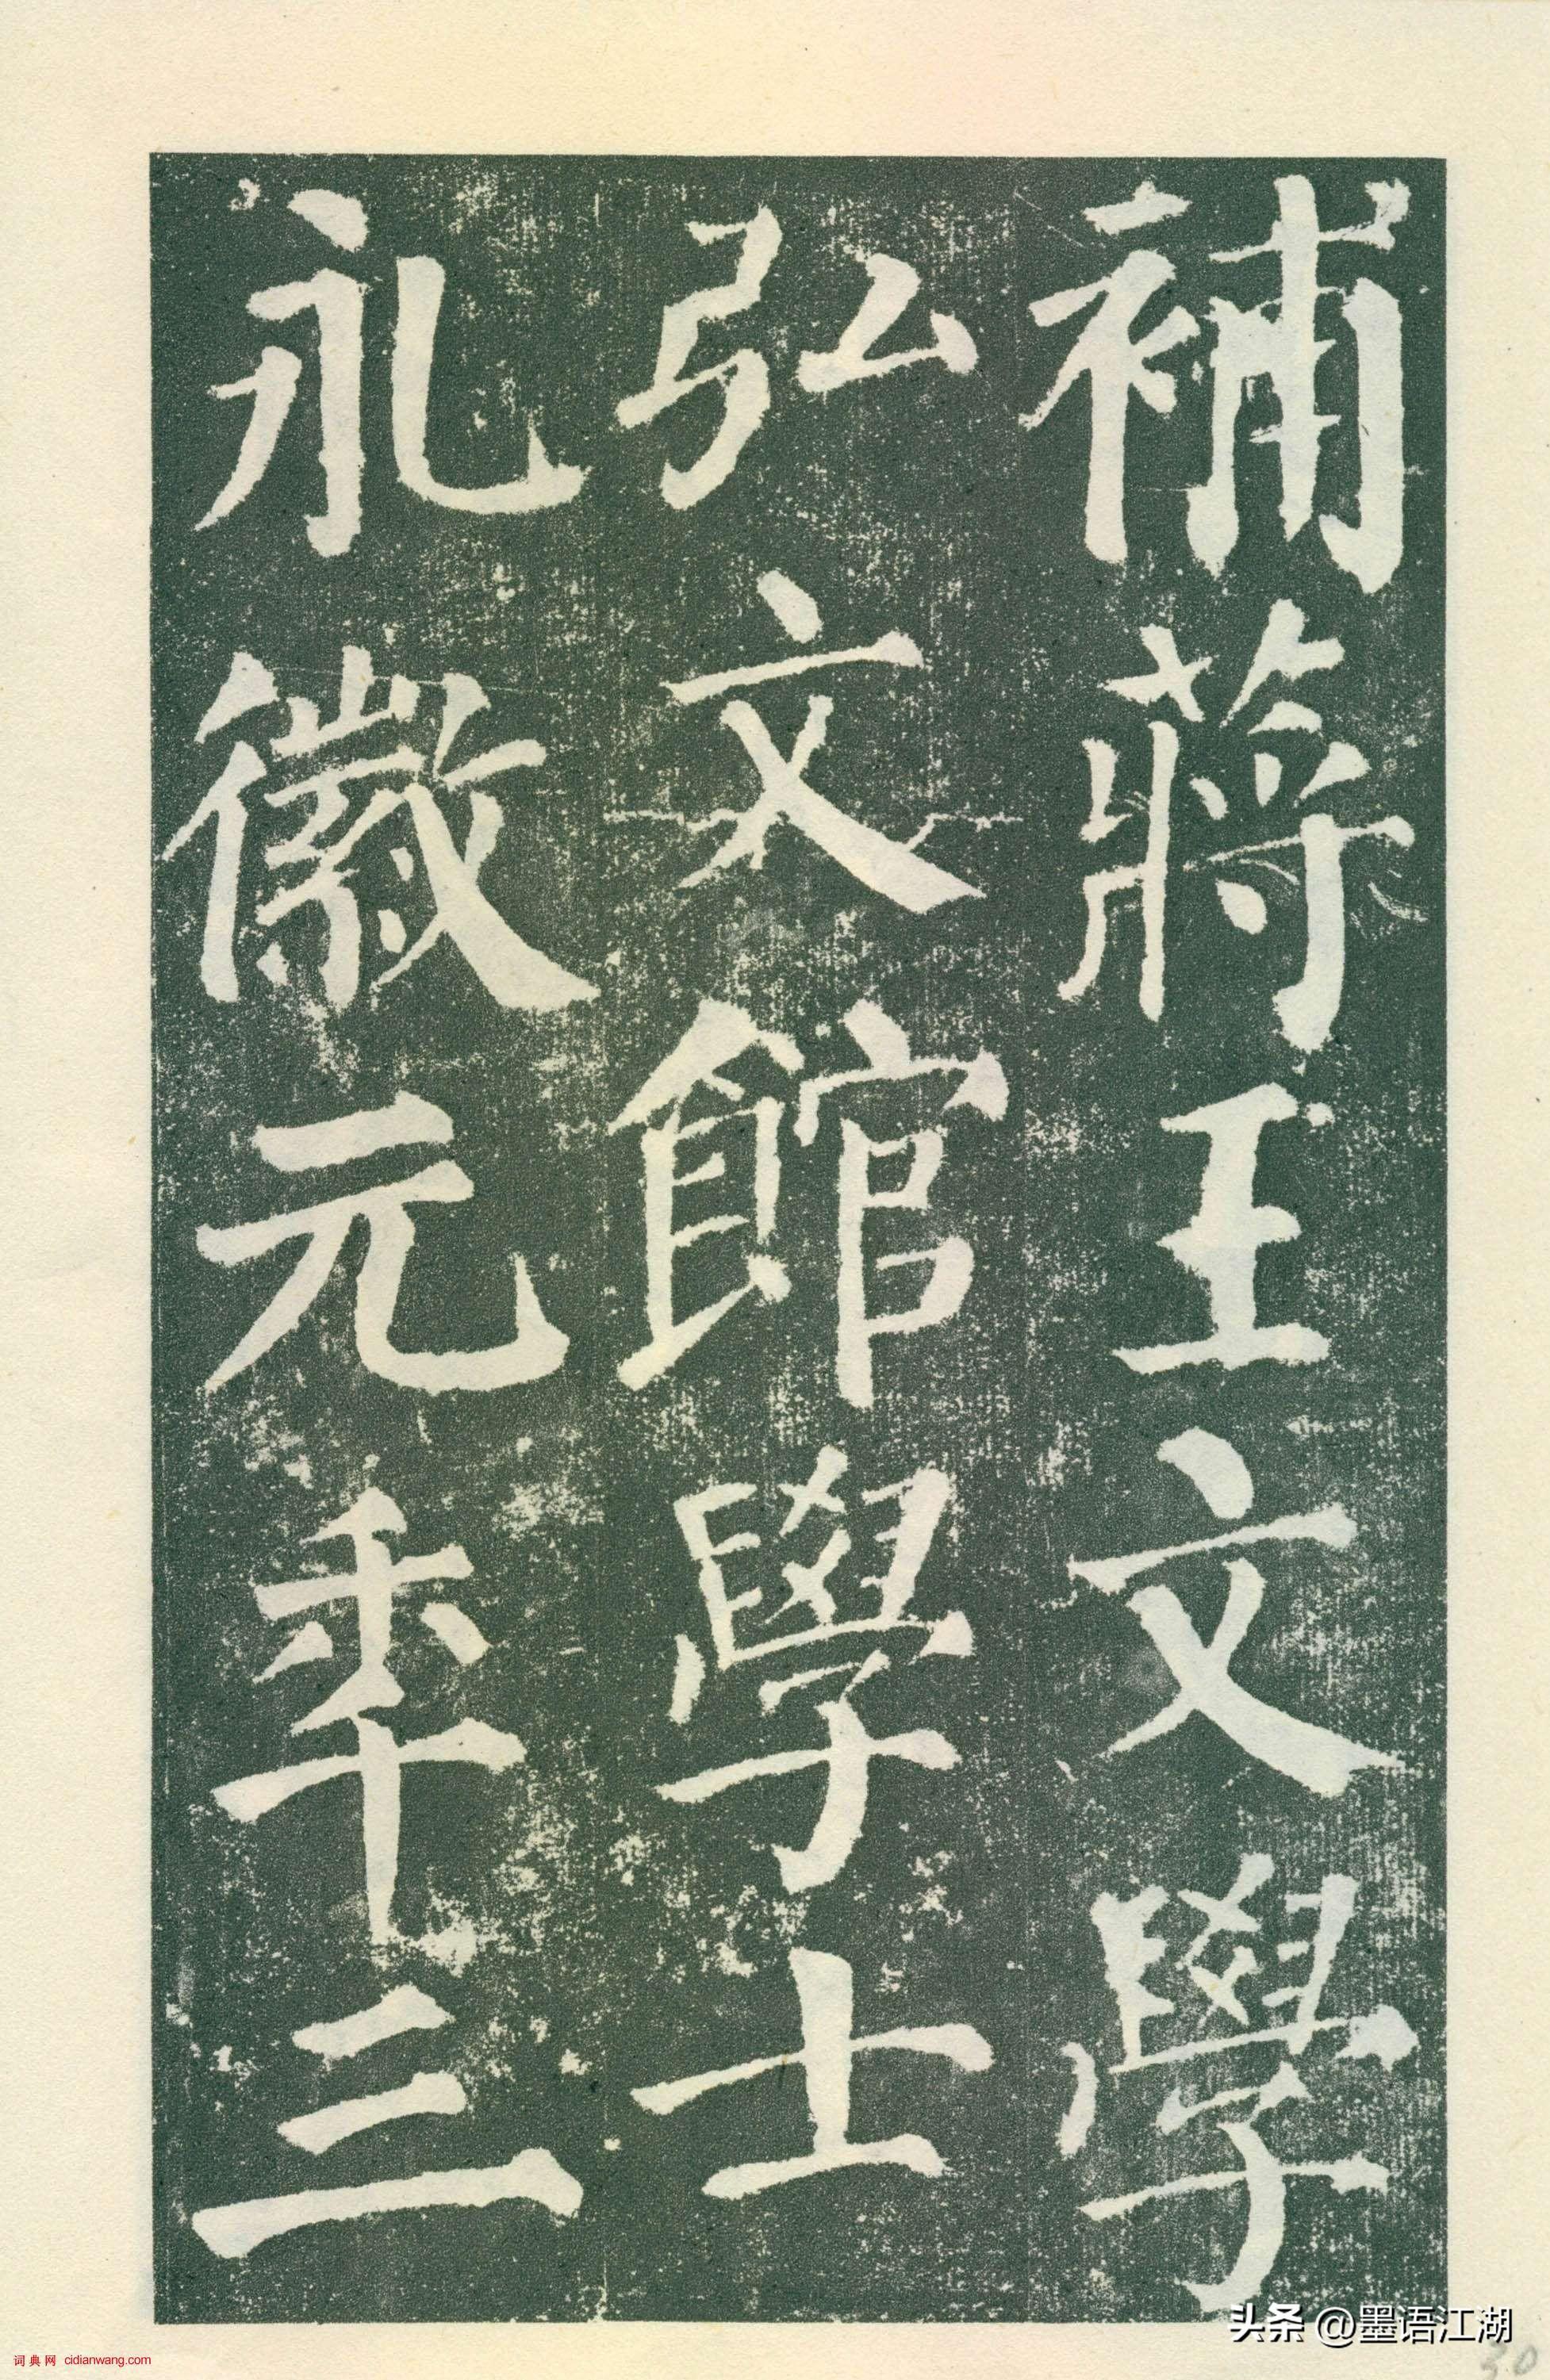 補蔣王文學
弘文館學士
永徽元年三
头条 @墨语江湖
词典网 cidianwang.com
30